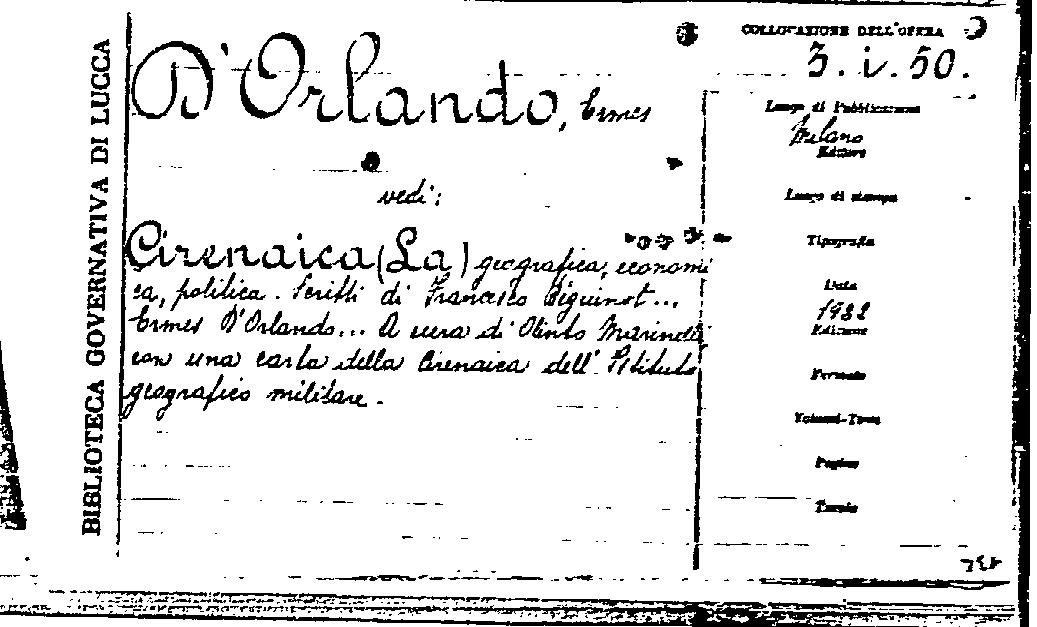 BIBLIOTECA GOVERNATIVA DI LUCCA
D'Orlando, Ermes
vedi:
Cirenaica (La) geografica, economi
ca, politica. Scritti di Francesco Biguinot...
Ermes D'Orlando... A cura di Olinto Marinelli
con una carta della Cirenaica dell'Istituto
geografico militare.
COLLOCAZIONE DELL'OPERA
3. i. 50.
Luogo di Pubblicazione
Milano
Editore
Luogo di stampa
Tipografia
Data
1922
Edizione
Formato
Volumi-Tomi
Pagine
Tavole